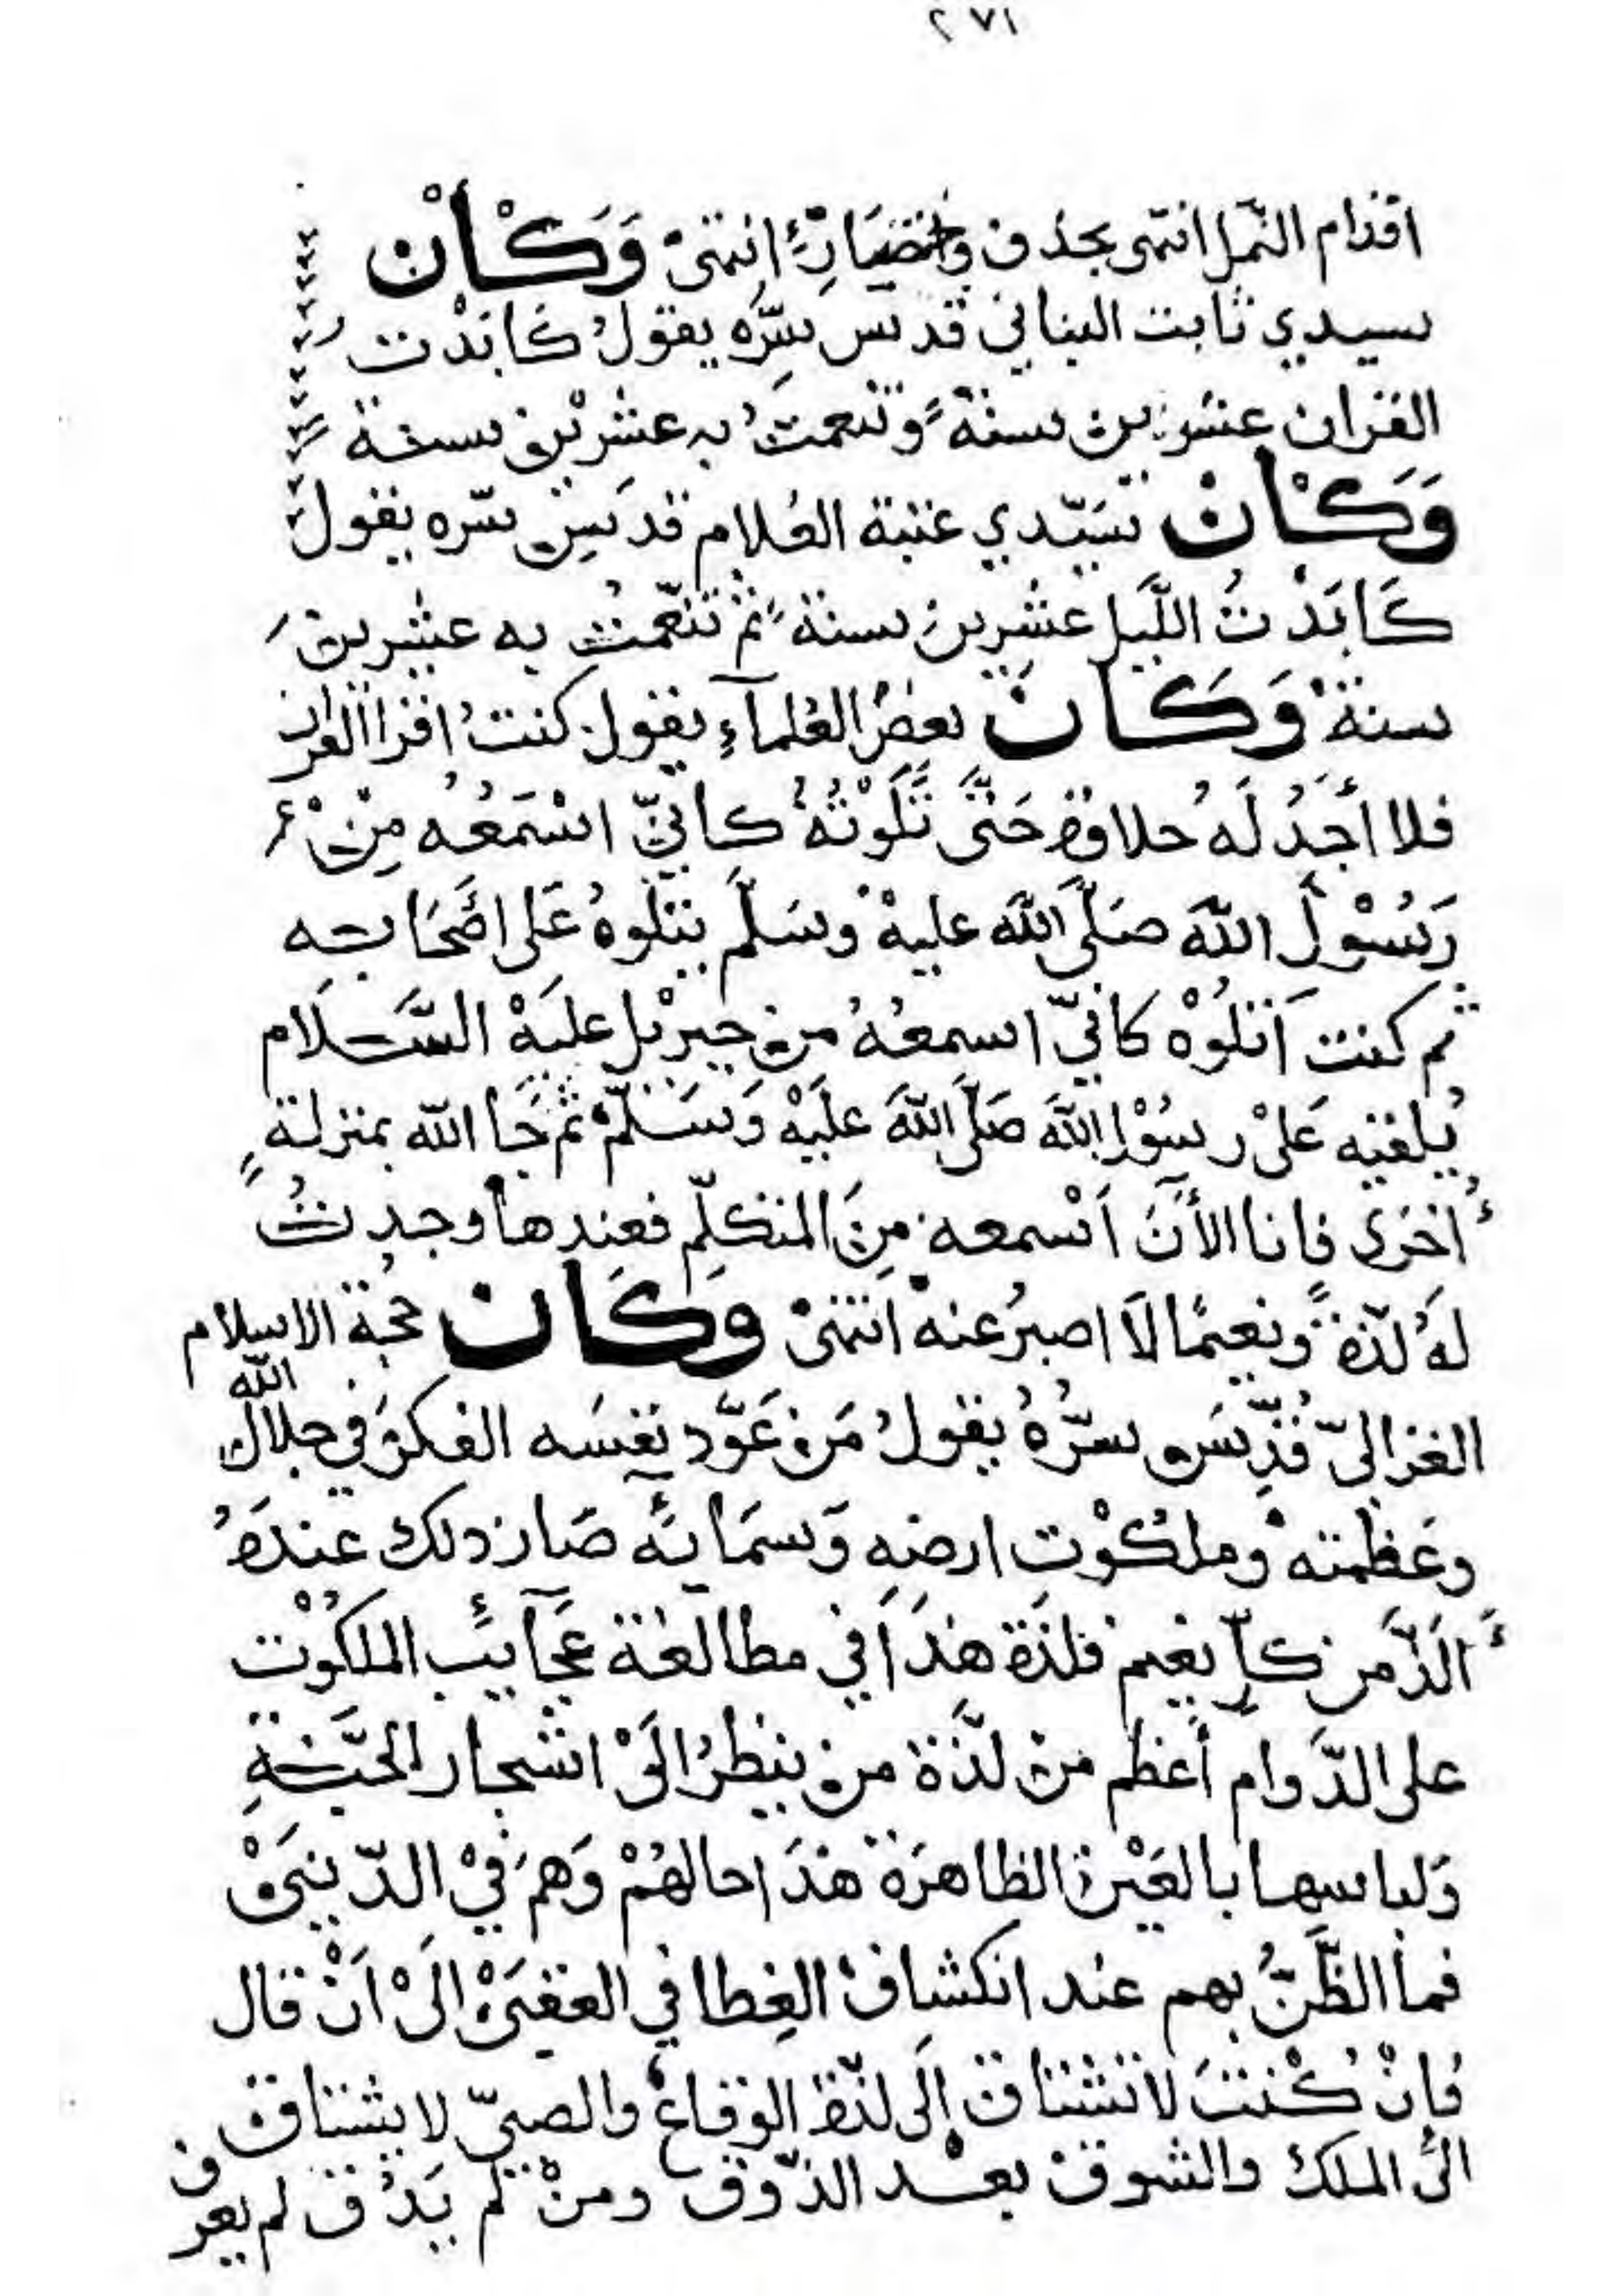 ٢٧١
اقدام النمل انتهى بحذف واختصار انتهى وَكَانْ
سيدي ثابت البناني قدس سره يقول كابدت
القران عشرين سنة وتنعمت به عشرين سنة
وَكَانْ سيدي عتبة الغلام قدس سره يقول
كابدت الليل عشرين سنة ثم تنعمت به عشرين
سنة وَكَانْ بعض العلمآء يقول كنت اقرا القران
فلا أجد له حلاوة حتى تلوته كاني اسمعه من
رسول الله صلى الله عليه وسلم يتلوه على اصحابه
ثم كنت اتلوه كاني اسمعه من جبريل عليه السلام
يلقيه على رسول الله صلى الله عليه وسلم ثم جا الله بمنزلة
أخرى فانا الأن اسمعه من المتكلم فعندها وجدت
له لذة ونعيما لا اصبر عنه انتهى وَكَانْ حجة الاسلام
الغزالي قدس سره يقول من عود نفسه الفكر في جلال الله
وعظمته وملكوت ارضه وسمايه صار ذلك عنده
ألذ من كل نعيم فلذة هذا في مطالعة عجآيب الملكوت
على الدوام أعظم من لذة من ينظر الى اشجار الجنة
ولباسها بالعين الظاهرة هذا حالهم وهم في الدنيى
فما الظن بهم عند انكشاف الغطا في العقبى الى ان قال
فان كنت لا تشتاق الى لذة الوقاع والصبي لا يشتاق
الى الملك والشوق بعد الذوق ومن لم يذق لم يعرف